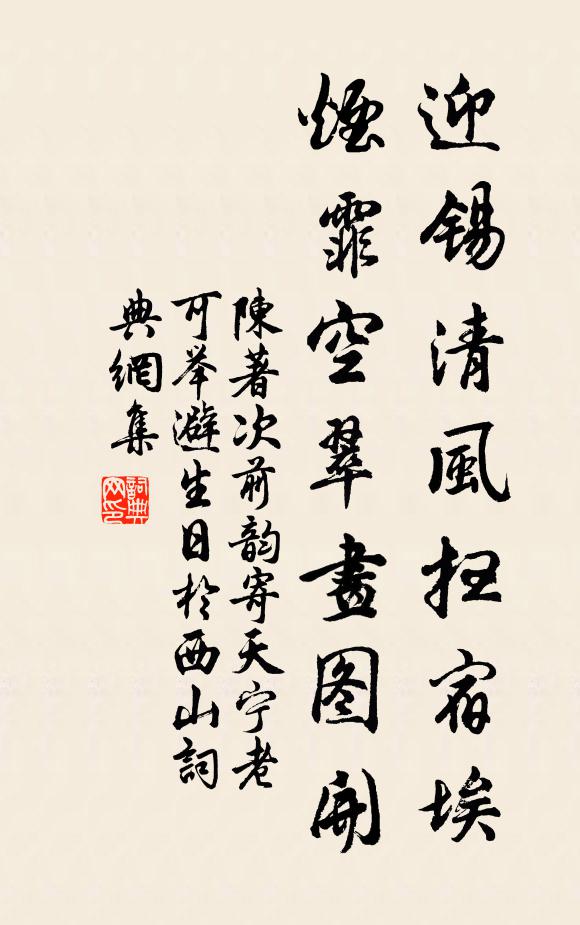 迎錫清風扫宿埃
煙霏空翠畫图開
陳著次前韵寄天宁老
可举避生日於西山詞
典網集
詞典网印